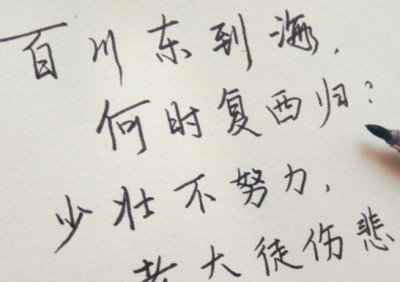 百川东到海，
何时复西归？
少壮不努力，
老大徒伤悲